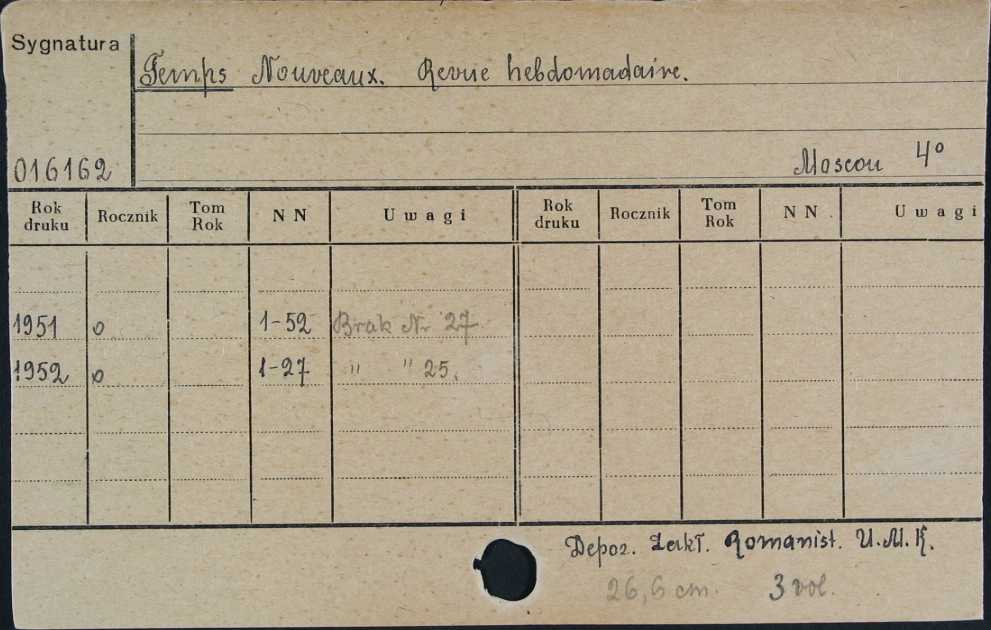 Sygnatura
Temps Nouveaux. Revue hebdomadaire.
016162 Moscou 4°
Rok druku Rocznik Tom Rok NN Uwagi Rok druku Rocznik Tom Rok NN Uwagi
1951 o 1-52 Brak Nr 27
1952 o 1-27 " " 25.
Depoz. Lekt. Romanist. U.M.K.
26,6 cm. 3 vol.